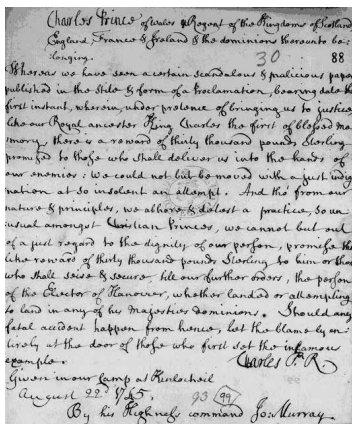 Charles Prince of Wales & Regent of the Kingdoms of Scotland
England, France & Ireland & the dominions thereunto be-
longing.
30 88
Whereas we have seen a certain scandalous & malicious paper
published in the stile & form of a Proclamation, bearing date the
first instant, wherein, under pretence of bringing us to justice
like our Royal ancester King Charles the first of blessed me-
mory, there is a reward of thirty thousand pounds Sterling
promised to those who shall deliver us into the hands of
our enemies: we could not but be moved with a just indig-
nation at so insolent an attempt. And tho' from our
nature & principles, we abhore & detest a practice, so un
usual amongst Christian Princes, we cannot but out
of a just regard to the dignity of our person, promise the
like reward of thirty thousand pounds Sterling to him or those
who shall seise & secure, till our further orders, the person
of the Elector of Hanover, whether landed or attempting
to land in any of his Majesties dominions. Should any
fatal accident happen from hence, let the blame ly en-
tirely at the door of those who first set the infamous
example. Charles P. R.
Given in our camp at Kinlocheil
August 22d 1745. 93 99
By his Highness command Jo: Murray.